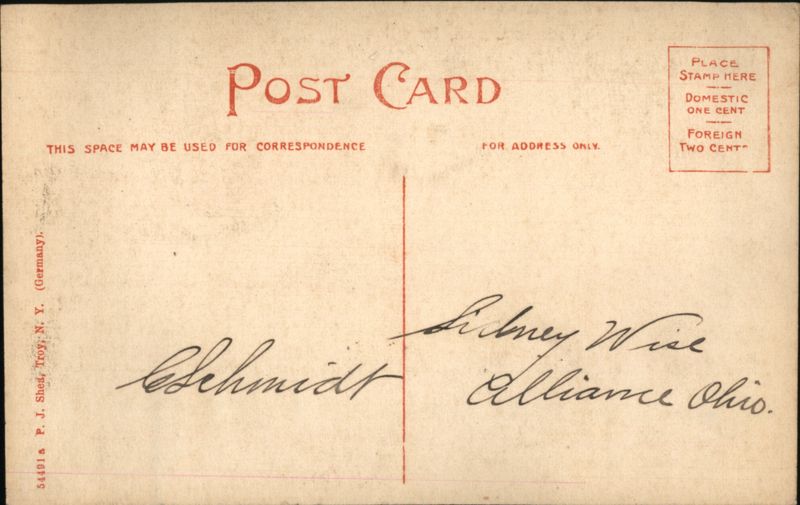 POST CARD
PLACE
STAMP HERE
DOMESTIC
ONE CENT
FOREIGN
TWO CENTS
THIS SPACE MAY BE USED FOR CORRESPONDENCE
FOR ADDRESS ONLY.
54491a P. J. Shea, Troy, N. Y. (Germany).
CSchmidt
Sidney Wise
Alliance Ohio.